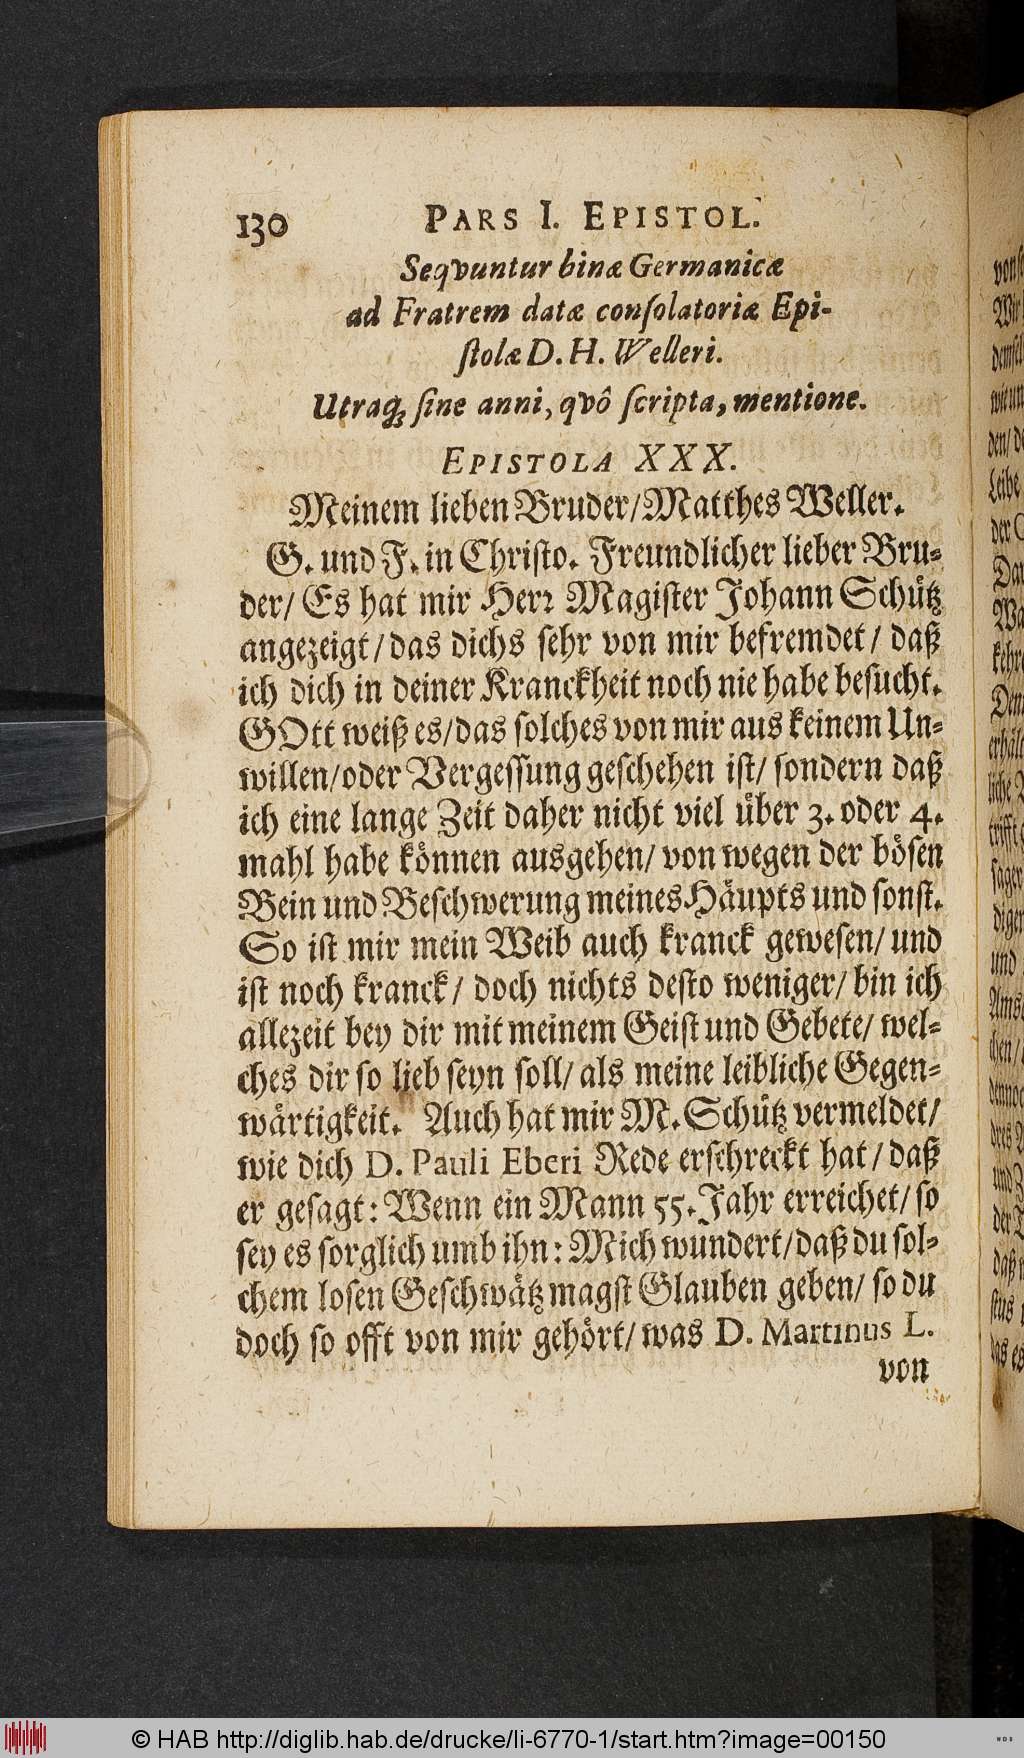 130 PARS I. EPISTOL.
Seqvuntur binæ Germanicæ
ad Fratrem datæ conſolatoriæ Epi-
ſtolæ D. H. Welleri.
Utraq; ſine anni, qvô ſcripta, mentione.
EPISTOLA XXX.
Meinem lieben Bruder/Matthes Weller.
G. und F. in Chriſto. Freundlicher lieber Bru-
der/ Es hat mir Herꝛ Magiſter Johann Schütz
angezeigt/das dichs ſehr von mir befremdet/ daß
ich dich in deiner Kranckheit noch nie habe beſucht.
GOtt weiß es/das ſolches von mir aus keinem Un-
willen/oder Vergeſſung geſchehen iſt/ ſondern daß
ich eine lange Zeit daher nicht viel über 3. oder 4.
mahl habe können ausgehen/ von wegen der böſen
Bein und Beſchwerung meines Häupts und ſonſt.
So iſt mir mein Weib auch kranck geweſen/ und
iſt noch kranck/ doch nichts deſto weniger/ bin ich
allezeit bey dir mit meinem Geiſt und Gebete/ wel-
ches dir ſo lieb ſeyn ſoll/ als meine leibliche Gegen-
wärtigkeit. Auch hat mir M. Schütz vermeldet/
wie dich D. Pauli Eberi Rede erſchreckt hat/ daß
er geſagt: Wenn ein Mann 55. Jahr erreichet/ ſo
ſey es ſorglich umb ihn: Mich wundert/daß du ſol-
chem loſen Geſchwätz magſt Glauben geben/ ſo du
doch ſo offt von mir gehört/ was D. Martinus L.
von
© HAB http://diglib.hab.de/drucke/li-6770-1/start.htm?image=00150